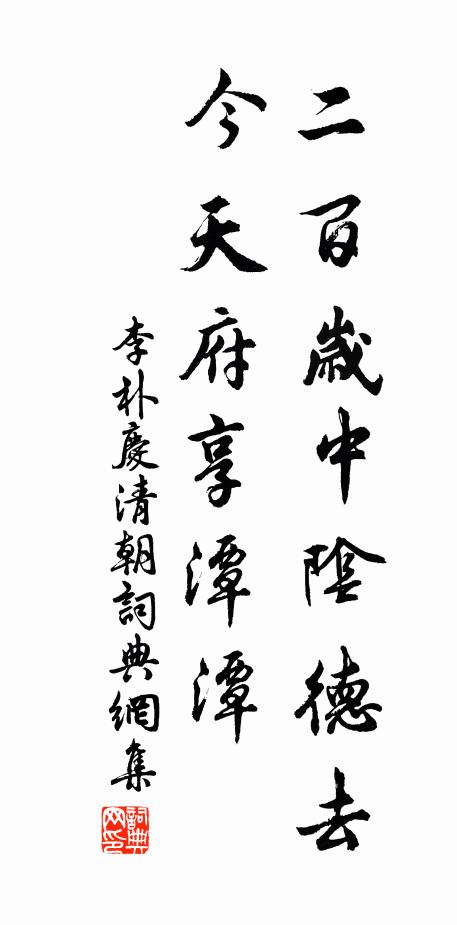 二百歲中陰德去
今天府享潭潭
李朴慶清朝詞典網集
詞典网印